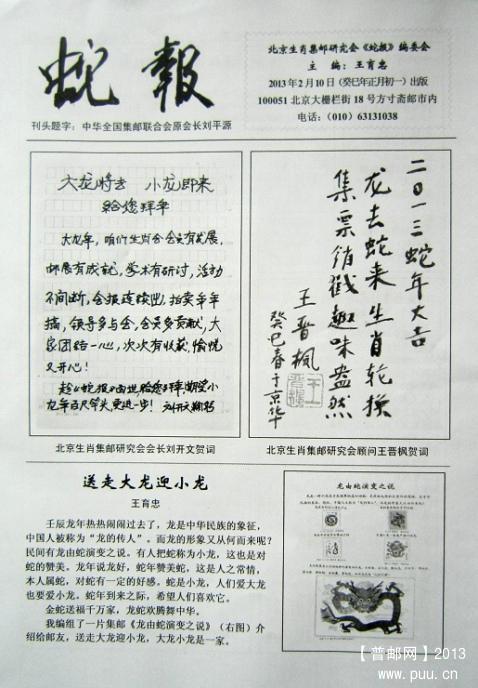 蛇報
刊头题字：中华全国集邮联合会原会长刘平源
北京生肖集邮研究会《蛇报》编委会
主 编：王育忠
2013年2月10日（癸巳年正月初一）出版
100051 北京大栅栏街18号方寸斋邮市内
电话：（010）63131038
大龙将去 小龙即来
给您拜年
大龙年，咱们生肖分会有发展，
邮展有成就，学术有研讨，活动
不间断，会报连续出，拍卖年年
搞，领导多与会，会员多贡献，大
家团结一心，次次有收获，愉悦
又开心！
趁《蛇报》面世，给您拜年，期望小
龙年百尺竿头，更进一步！ 刘开文鞠躬
二〇一三蛇年大吉
龙去蛇来生肖轮换
集票销戳趣味盎然
王晋枫
癸巳春于京华
北京生肖集邮研究会会长刘开文贺词
北京生肖集邮研究会顾问王晋枫贺词
送走大龙迎小龙
王育忠
壬辰龙年热热闹闹过去了，龙是中华民族的象征，
中国人被称为“龙的传人”。而龙的形象又从何而来呢？
民间有龙由蛇演变之说。有人把蛇称为小龙，这也是对
蛇的赞美。龙年说龙好，蛇年赞蛇美，这是人之常情，
本人属蛇，对蛇有一定的好感。蛇是小龙，人们爱大龙
也要爱小龙。蛇年到来之际，希望人们喜欢它。
金蛇送福千万家，龙蛇欢腾舞中华。
我编组了一片集邮《龙由蛇演变之说》（右图）介
绍给邮友，送走大龙迎小龙，大龙小龙是一家。
龙由蛇演变之说
【普邮网】2013
www.puu.cn